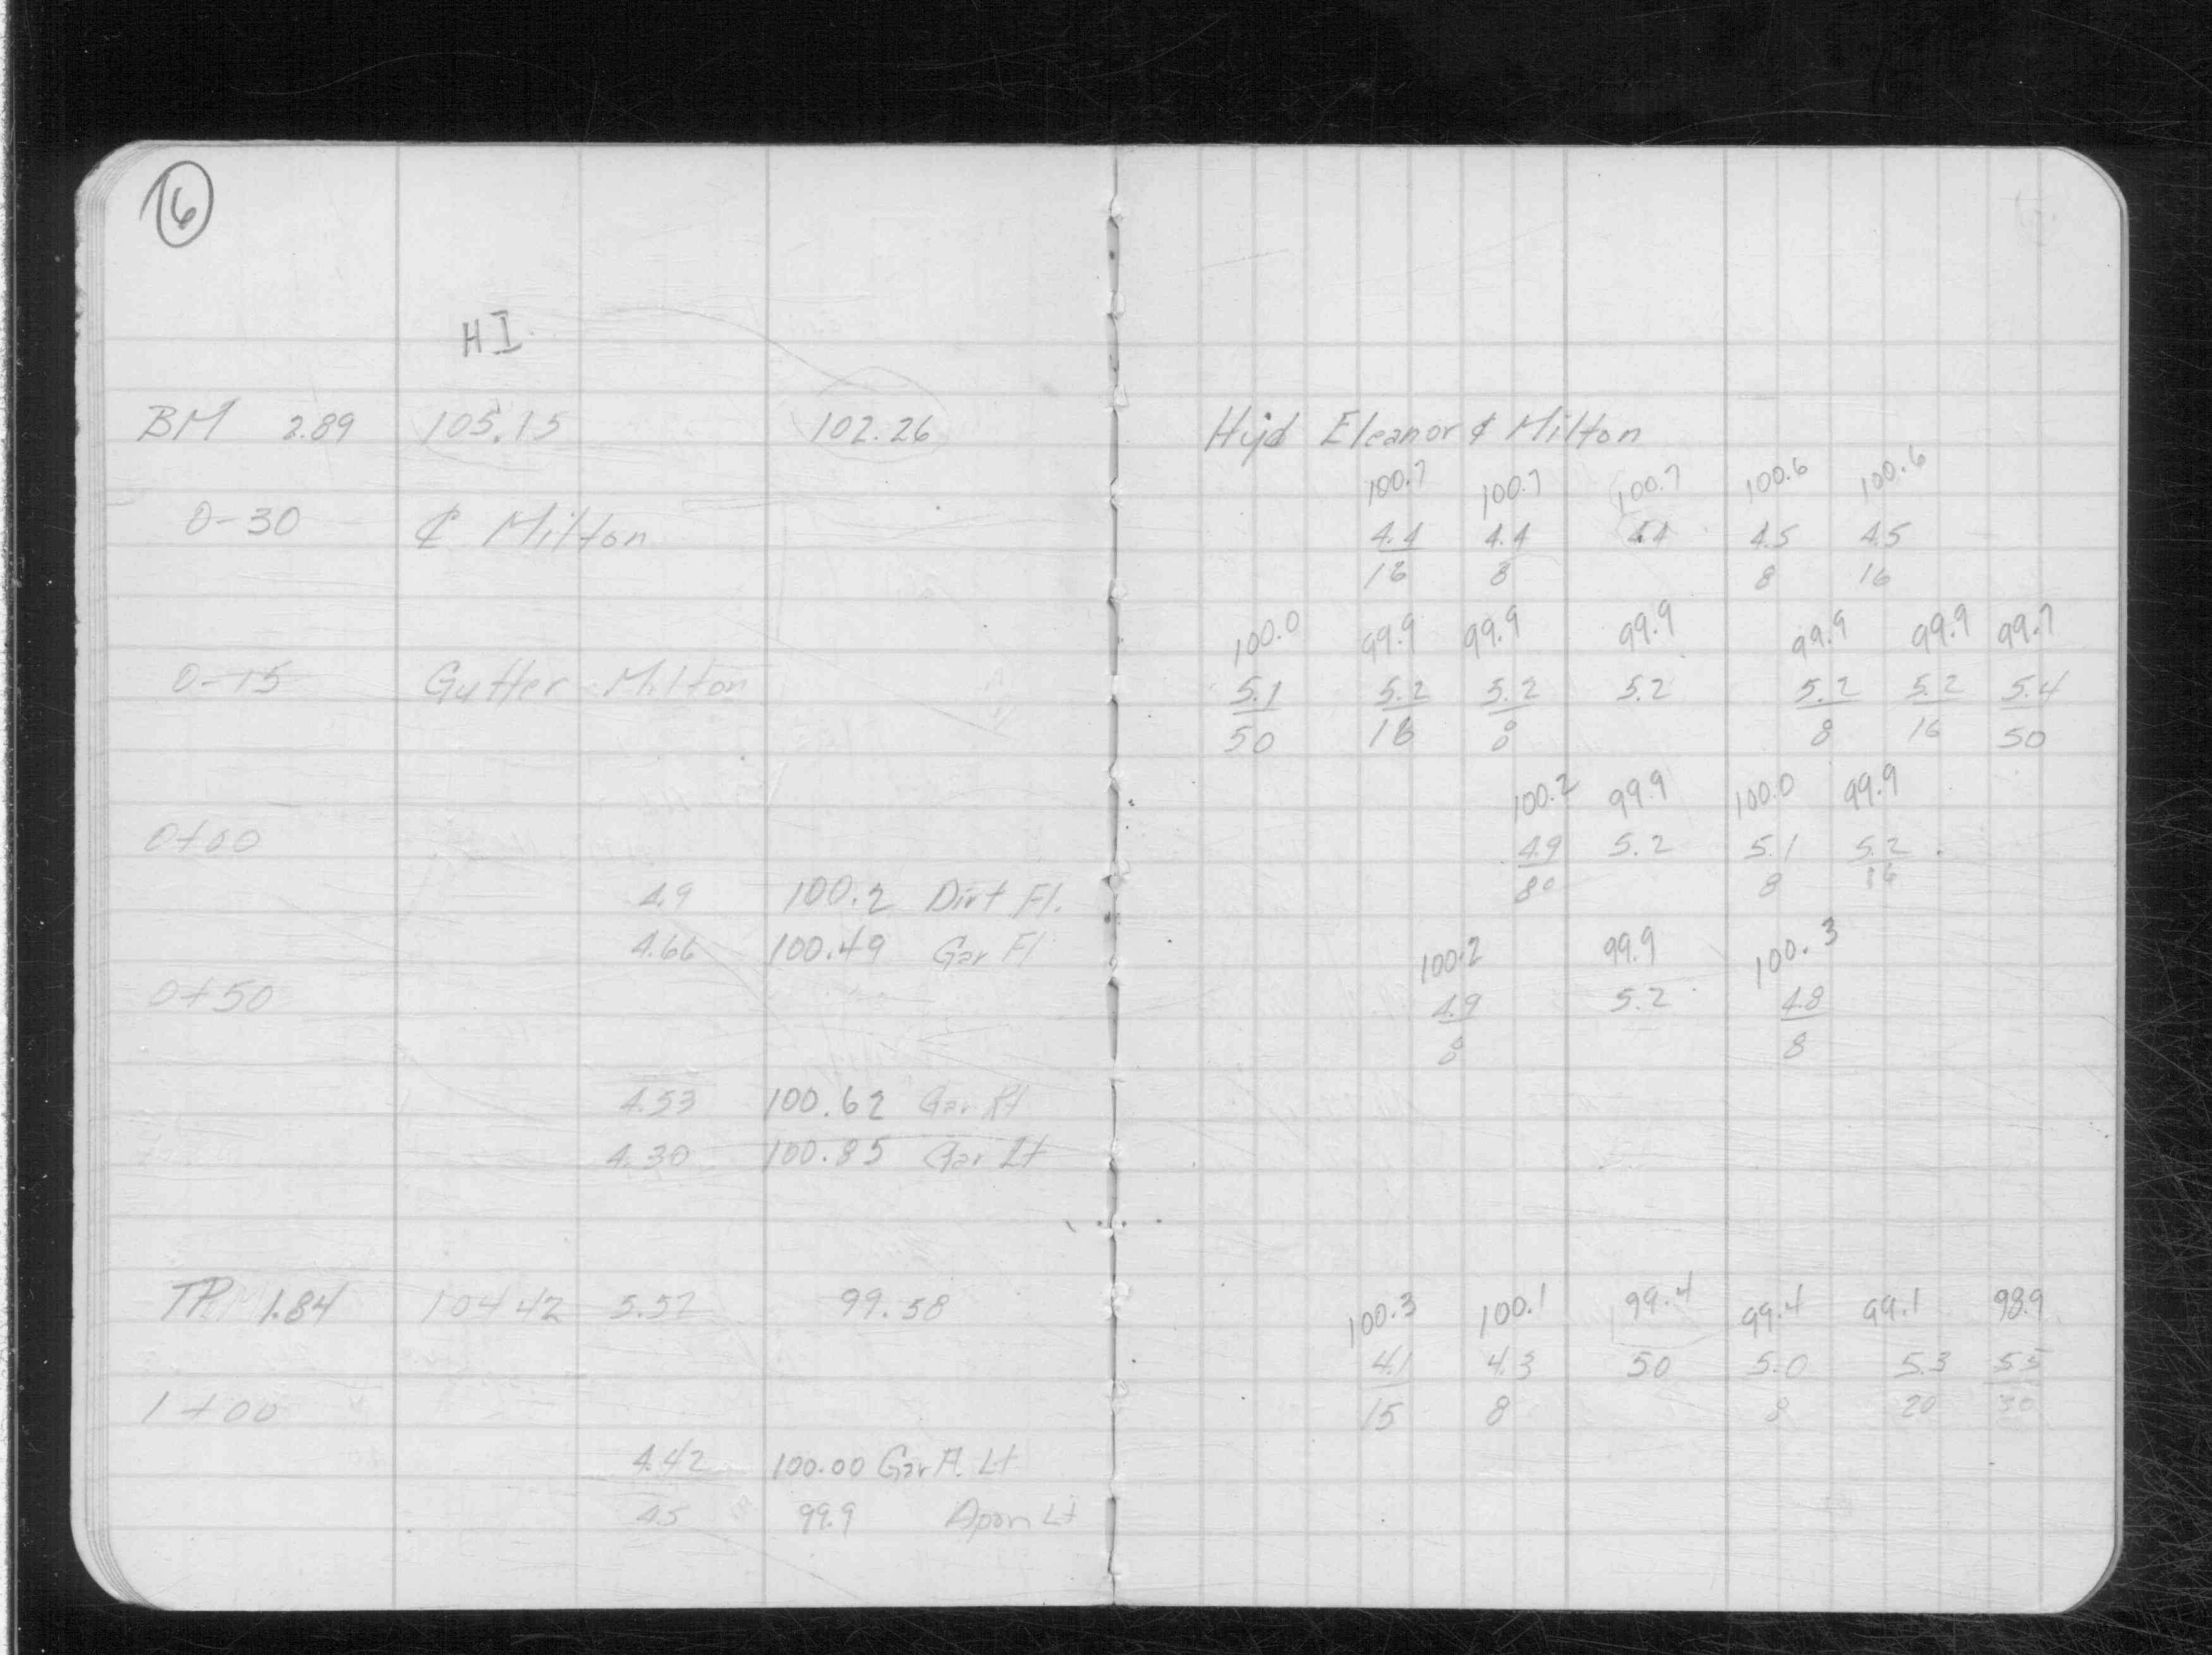 16
HI
BM 2.89 105.15 102.26 Hyd Eleanor & Milton
100.7 100.7 100.7 100.6 100.6
0-30 ₵ Milton 4.4 4.4 4.4 4.5 4.5
16 8 8 16
100.0 99.9 99.9 99.9 99.9 99.9 99.7
0-15 Gutter Milton 5.1 5.2 5.2 5.2 5.2 5.2 5.4
50 16 8 8 16 50
100.2 99.9 100.0 99.9
0+00 4.9 5.2 5.1 5.2
4.9 100.2 Dirt Fl. 8 16
4.66 100.49 Gar Fl 100.2 99.9 100.3
0+50 4.9 5.2 4.8
8 8
4.53 100.62 Gar Rt
4.30 100.85 Gar Lt
TP 1.84 104.42 5.57 99.58 100.3 100.1 99.4 99.4 99.1 98.9
4.1 4.3 50 5.0 5.3 5.5
1+00 15 8 8 20 50
4.42 100.00 Gar Fl. Lt
4.5 99.9 Apon Lt